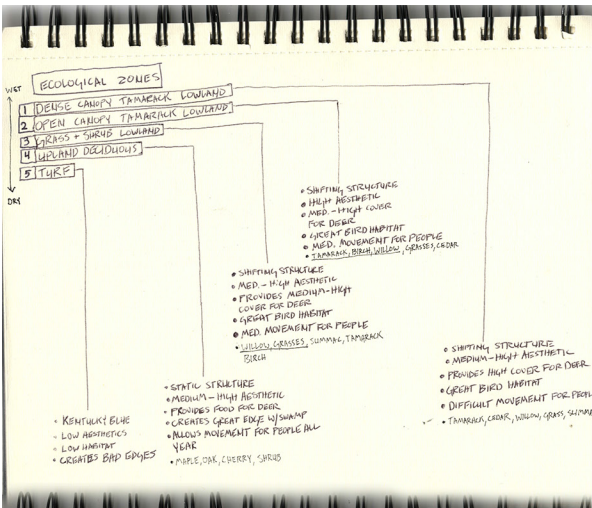 ECOLOGICAL ZONES
WET
1 DENSE CANOPY TAMARACK LOWLAND
2 OPEN CANOPY TAMARACK LOWLAND
3 GRASS + SHRUB LOWLAND
4 UPLAND DECIDUOUS
5 TURF
DRY
• SHIFTING STRUCTURE
• HIGH AESTHETIC
• MED. - HIGH COVER
FOR DEER
• GREAT BIRD HABITAT
• MED. MOVEMENT FOR PEOPLE
• TAMARACK, BIRCH, WILLOW, GRASSES, CEDAR
• SHIFTING STRUCTURE
• MED. - HIGH AESTHETIC
• PROVIDES MEDIUM-HIGH
COVER FOR DEER
• GREAT BIRD HABITAT
• MED. MOVEMENT FOR PEOPLE
• WILLOW, GRASSES, SUMMAC, TAMARACK
BIRCH
• SHIFTING STRUCTURE
• MEDIUM-HIGH AESTHETIC
• PROVIDES HIGH COVER FOR DEER
• GREAT BIRD HABITAT
• DIFFICULT MOVEMENT FOR PEOPL
• TAMARACK, CEDAR, WILLOW, GRASS, SUMMA
• STATIC STRUCTURE
• MEDIUM-HIGH AESTHETIC
• PROVIDES FOOD FOR DEER
• CREATES GREAT EDGE W/SWAMP
• ALLOWS MOVEMENT FOR PEOPLE ALL
YEAR
• MAPLE, OAK, CHERRY, SHRUB
• KENTUCKY BLUE
• LOW AESTHETICS
• LOW HABITAT
• CREATES BAD EDGES